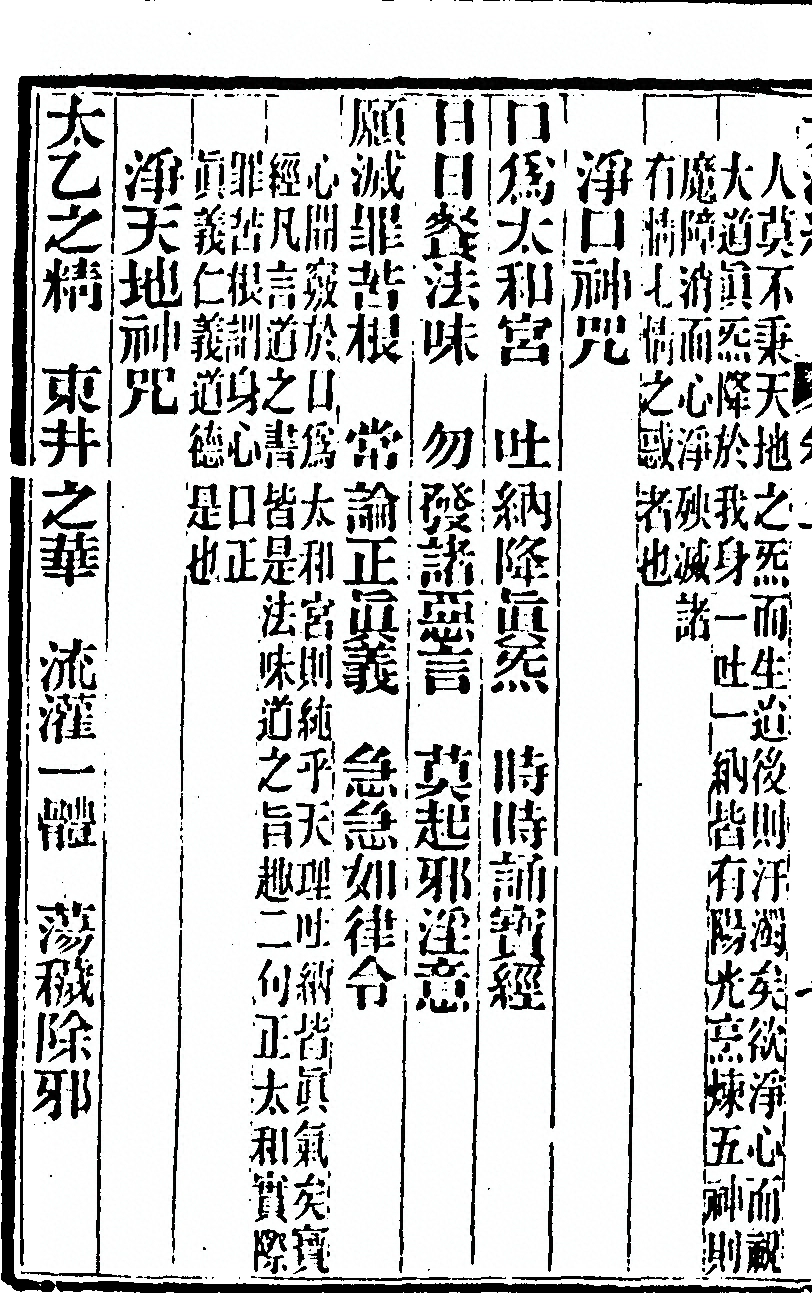 人莫不秉天地之炁而生迨後則汙濁矣欲淨心而視
大道眞炁降於我身一吐一納皆有陽光烹煉五神則
魔障消而心淨殃滅諸
有情七情之惑者也
淨口神咒
口爲太和宮　吐納降眞炁　時時誦寶經
日日餐法味　勿發諸惡言　莫起邪淫意
願滅罪苦根　常論正眞義　急急如律令
心開竅於口爲太和宮則純乎天理吐納皆眞氣矣寶
經凡言道之書皆是法味道之旨趣二句正太和實際
罪苦根訓身心口正
眞義仁義道德是也
淨天地神咒
太乙之精　東井之華　流灌一體　蕩穢除邪